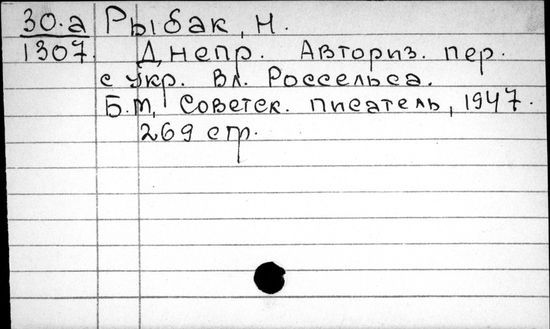 30.а Рыбак, Н.
1307 Днепр. Авториз. пер.
с укр. Вл. Россельса.
Б.м, Советск. писатель, 1947.
269 стр.